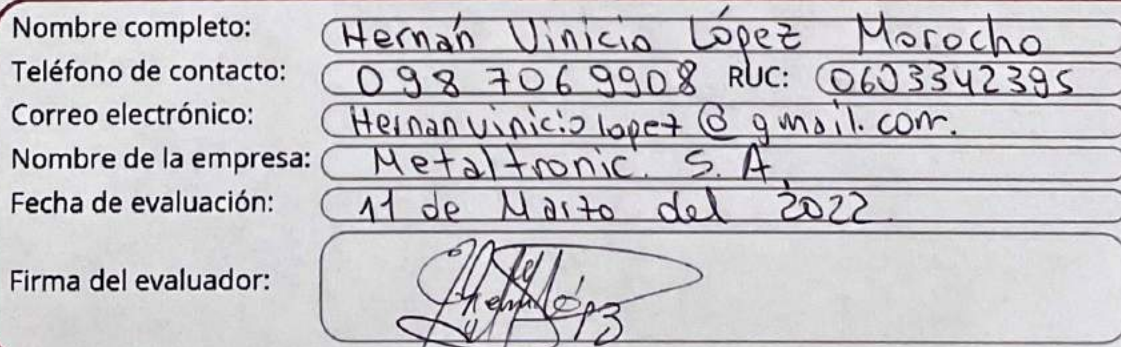 Nombre completo: Hernán Vinicio López Morocho
Teléfono de contacto: 098 706 9908 RUC: 0603342395
Correo electrónico: Hernanviniciolopez@gmail.com.
Nombre de la empresa: Metaltronic. S. A.
Fecha de evaluación: 11 de Marzo del 2022.
Firma del evaluador: